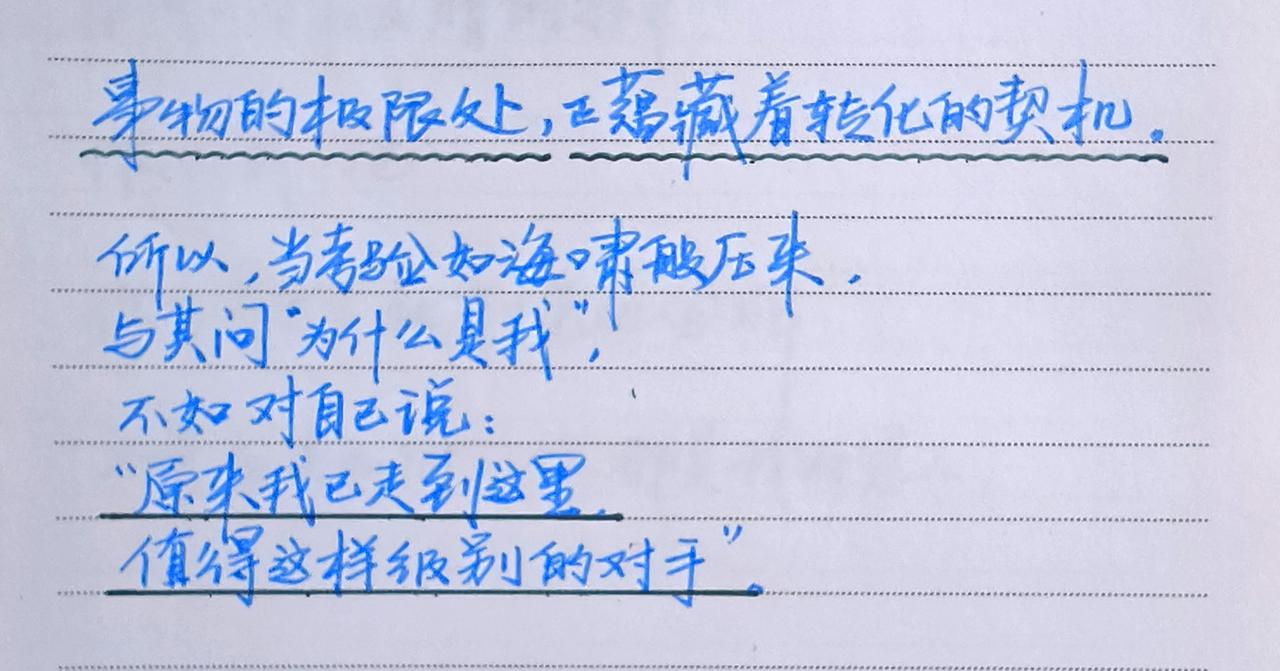 事物的极限处,正蕴藏着转化的契机。
所以,当考验如海啸般压来,
与其问“为什么是我”,
不如对自己说:
“原来我已走到这里,
值得这样级别的对手”。